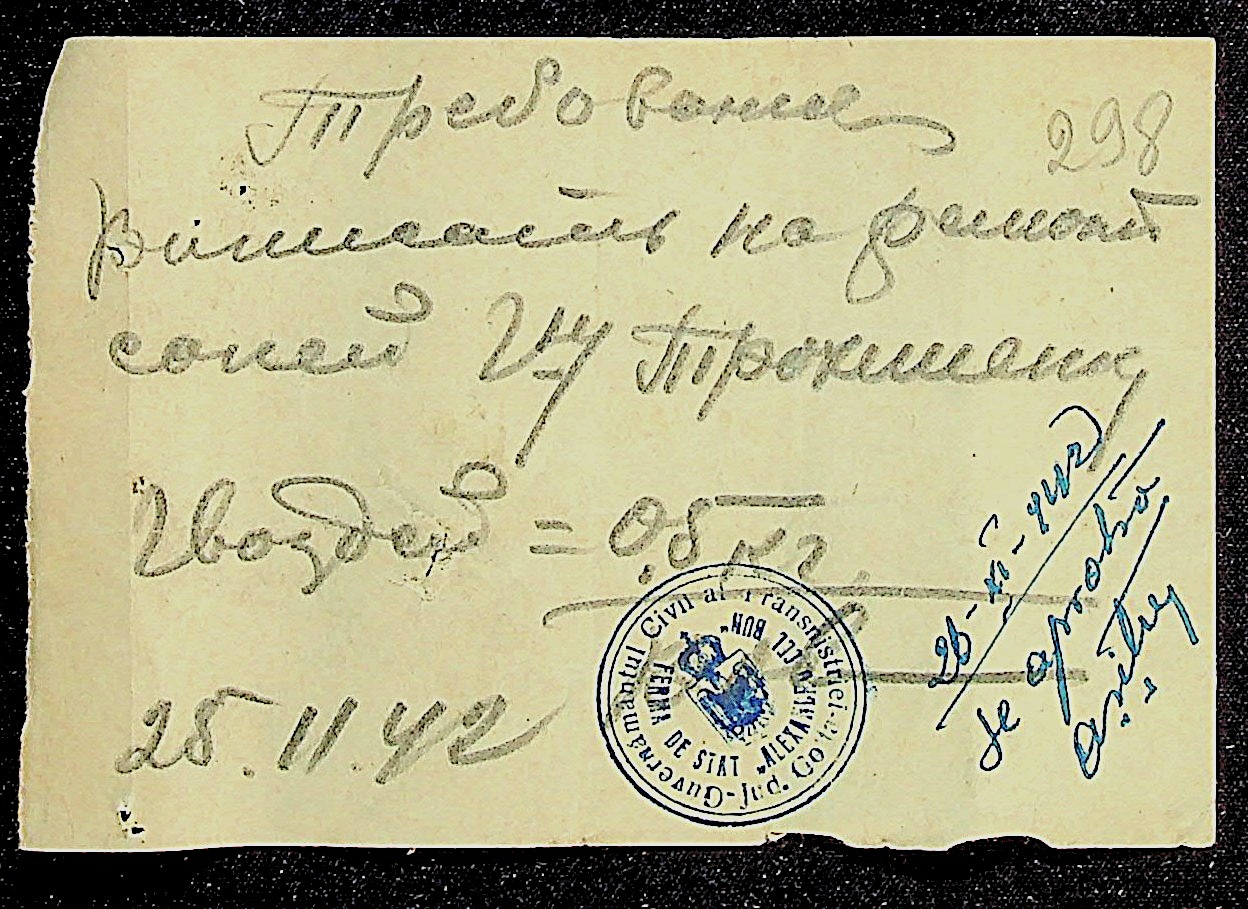 Требование
298
Выписать на ремонт
саней Трохименку
Гвоздей = 0,5 кг.
25.11.42
26-XI-942
se aprobă
Guvernământul Civil al Transnistriei-Jud. Golta
FERMA DE STAT „ALEXANDRU CEL BUN"